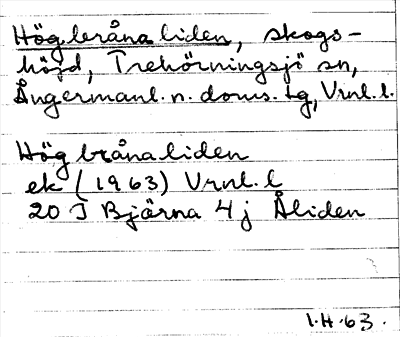 Högbrånaliden, skogs-
höjd, Trehörningsjö sn,
Ångermanl. n. doms. tg, Vrnl. l.
Högbrånaliden
ek (1963) Vrnl. l
20 J Björna 4 j Åliden
1.H.63.